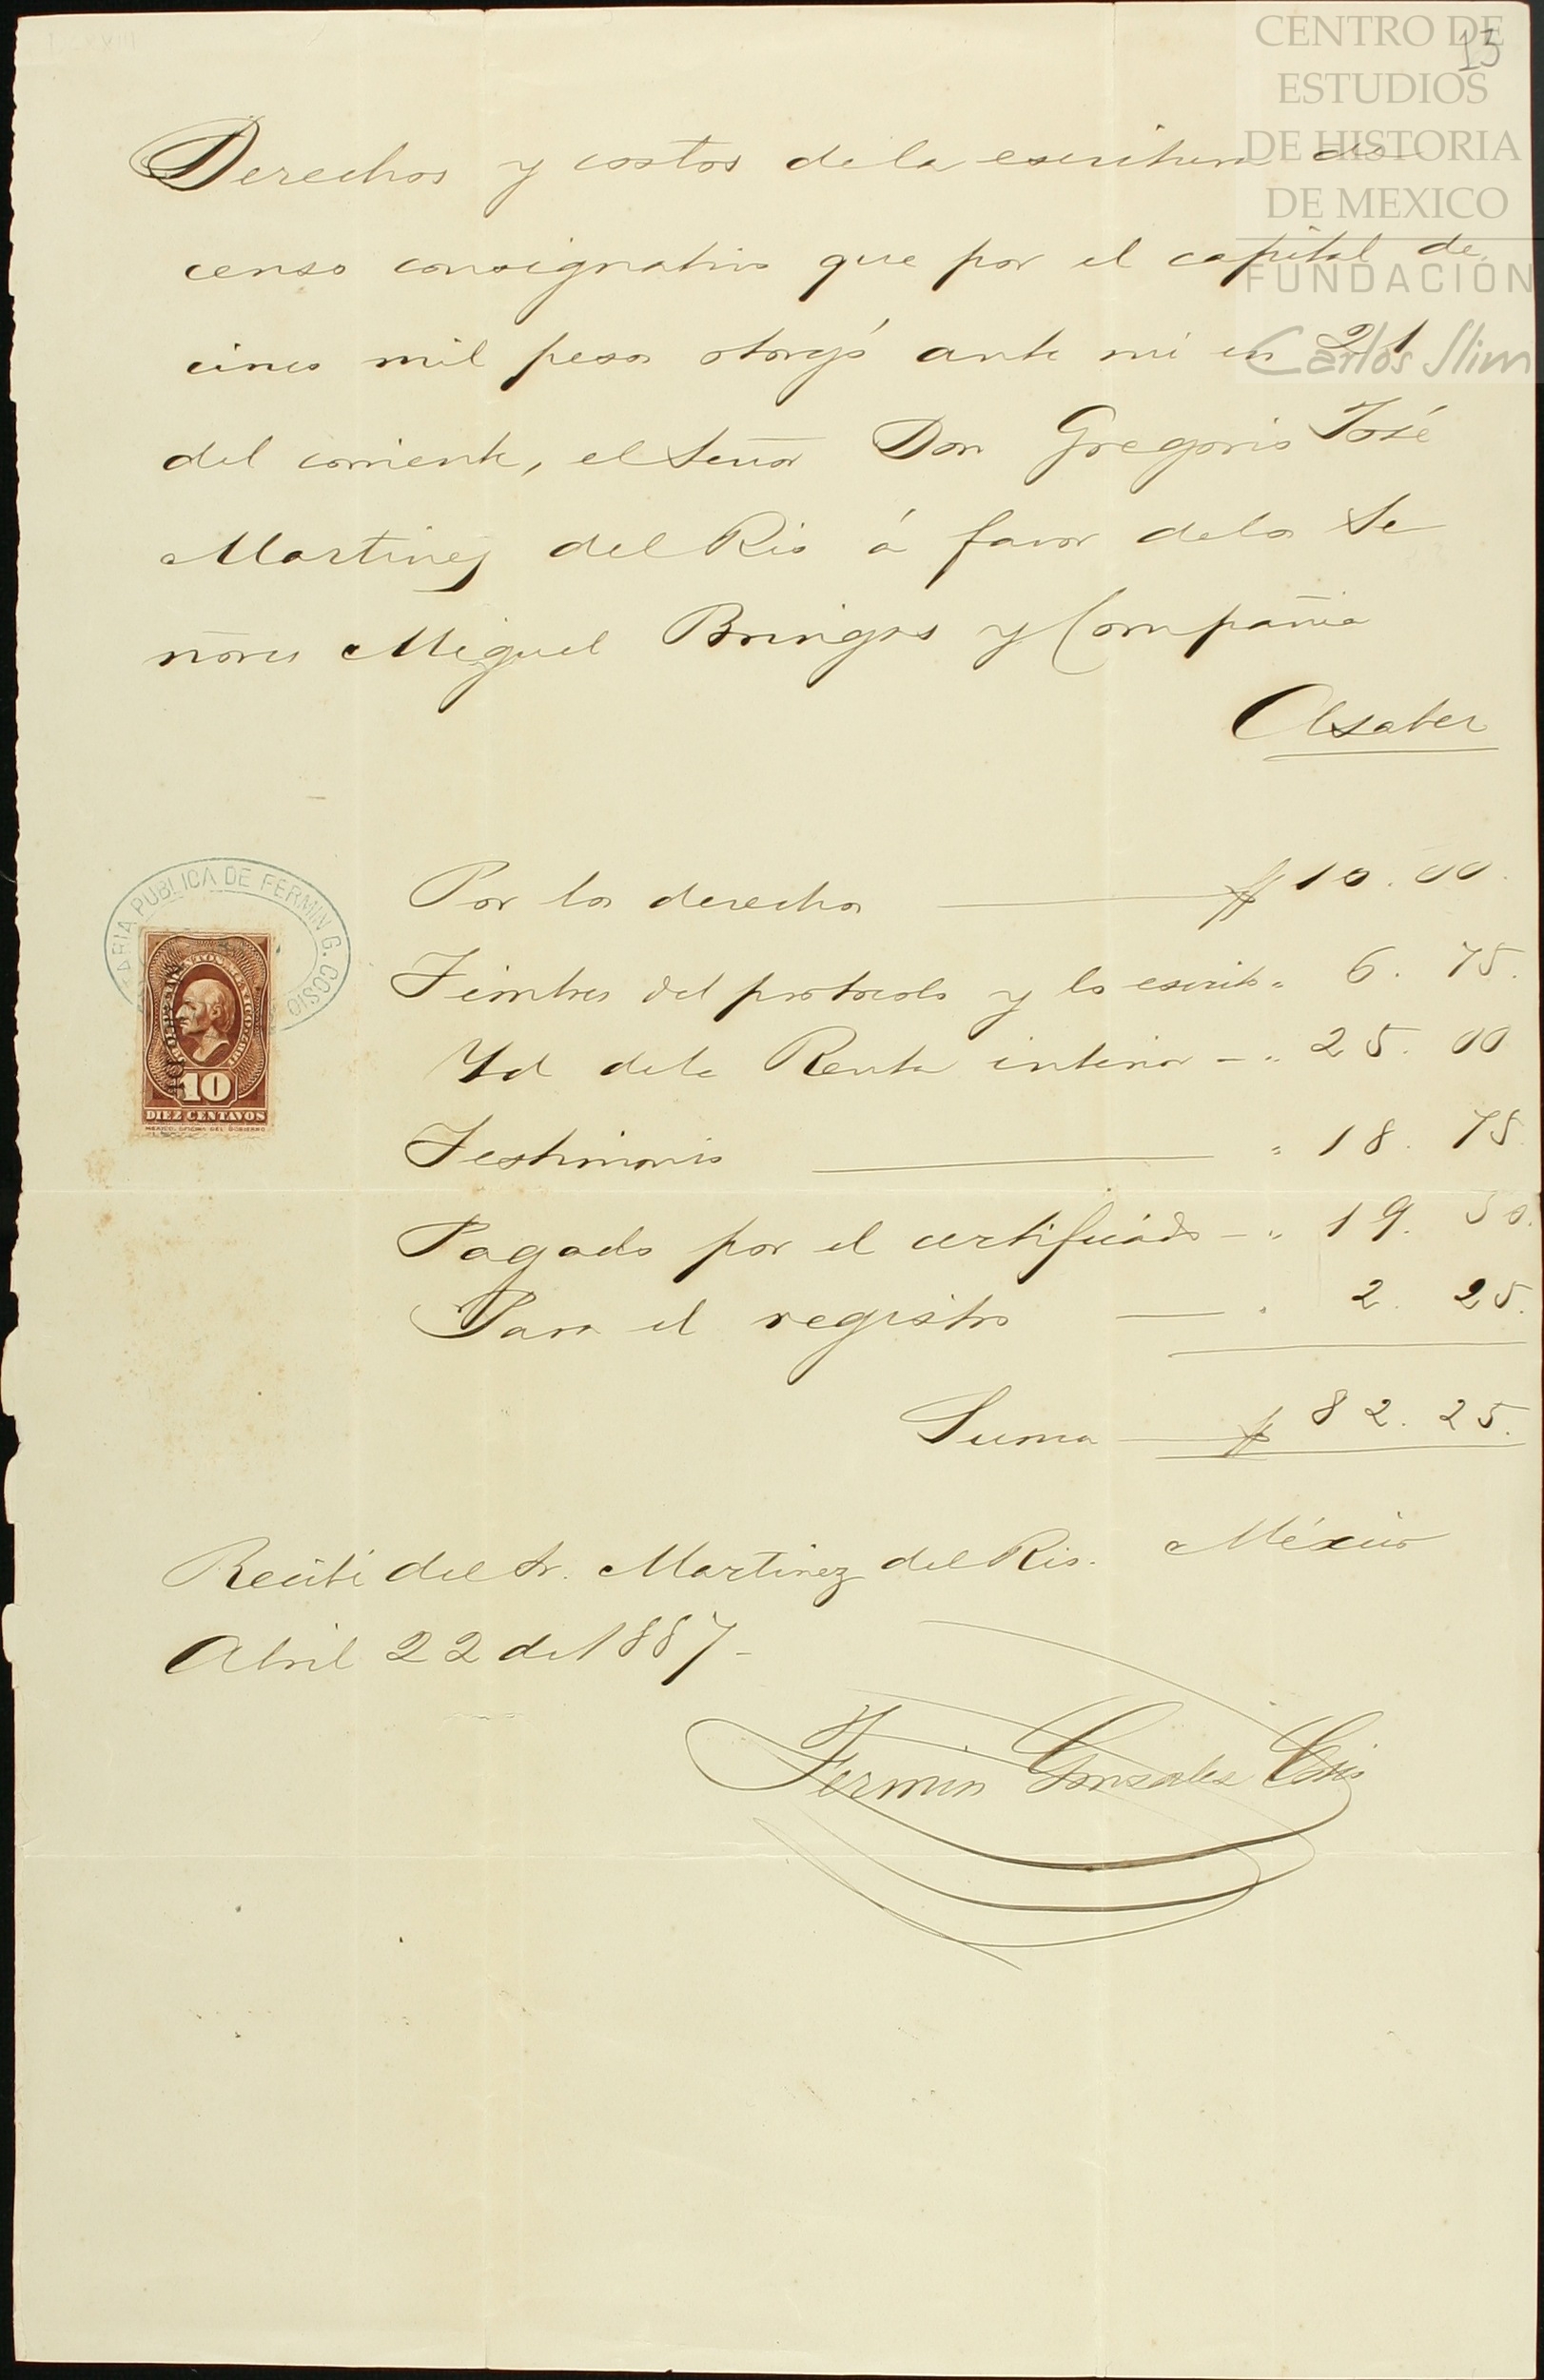 CENTRO DE
ESTUDIOS
DE HISTORIA
DE MEXICO
FUNDACIÓN
Carlos Slim
13
Derechos y costos de la escritura de
censo consignativo que por el capital de
cinco mil pesos otorgó ante mi en 21
del corriente, el Señor Don Gregorio José
Martinez del Rio á favor de los Se
ñores Miguel Bringas y Compañia
A saber
NOTARIA PUBLICA DE FERMIN G. COSIO
10
DIEZ CENTAVOS
MEXICO. OFICINA DEL GOBIERNO
Por los derechos $ 10.00.
Timbres del protocolo y la escrita " 6.75.
Yd de la Renta interior - " 25.00
Testimonio " 18.75
Pagado por el certificado - " 19.50.
Para el registro " 2.25.
Suma $ 82.25.
Recibí del Sr. Martinez del Rio. México
Abril 22 de 1887-
Fermin Gonzalez Cosio